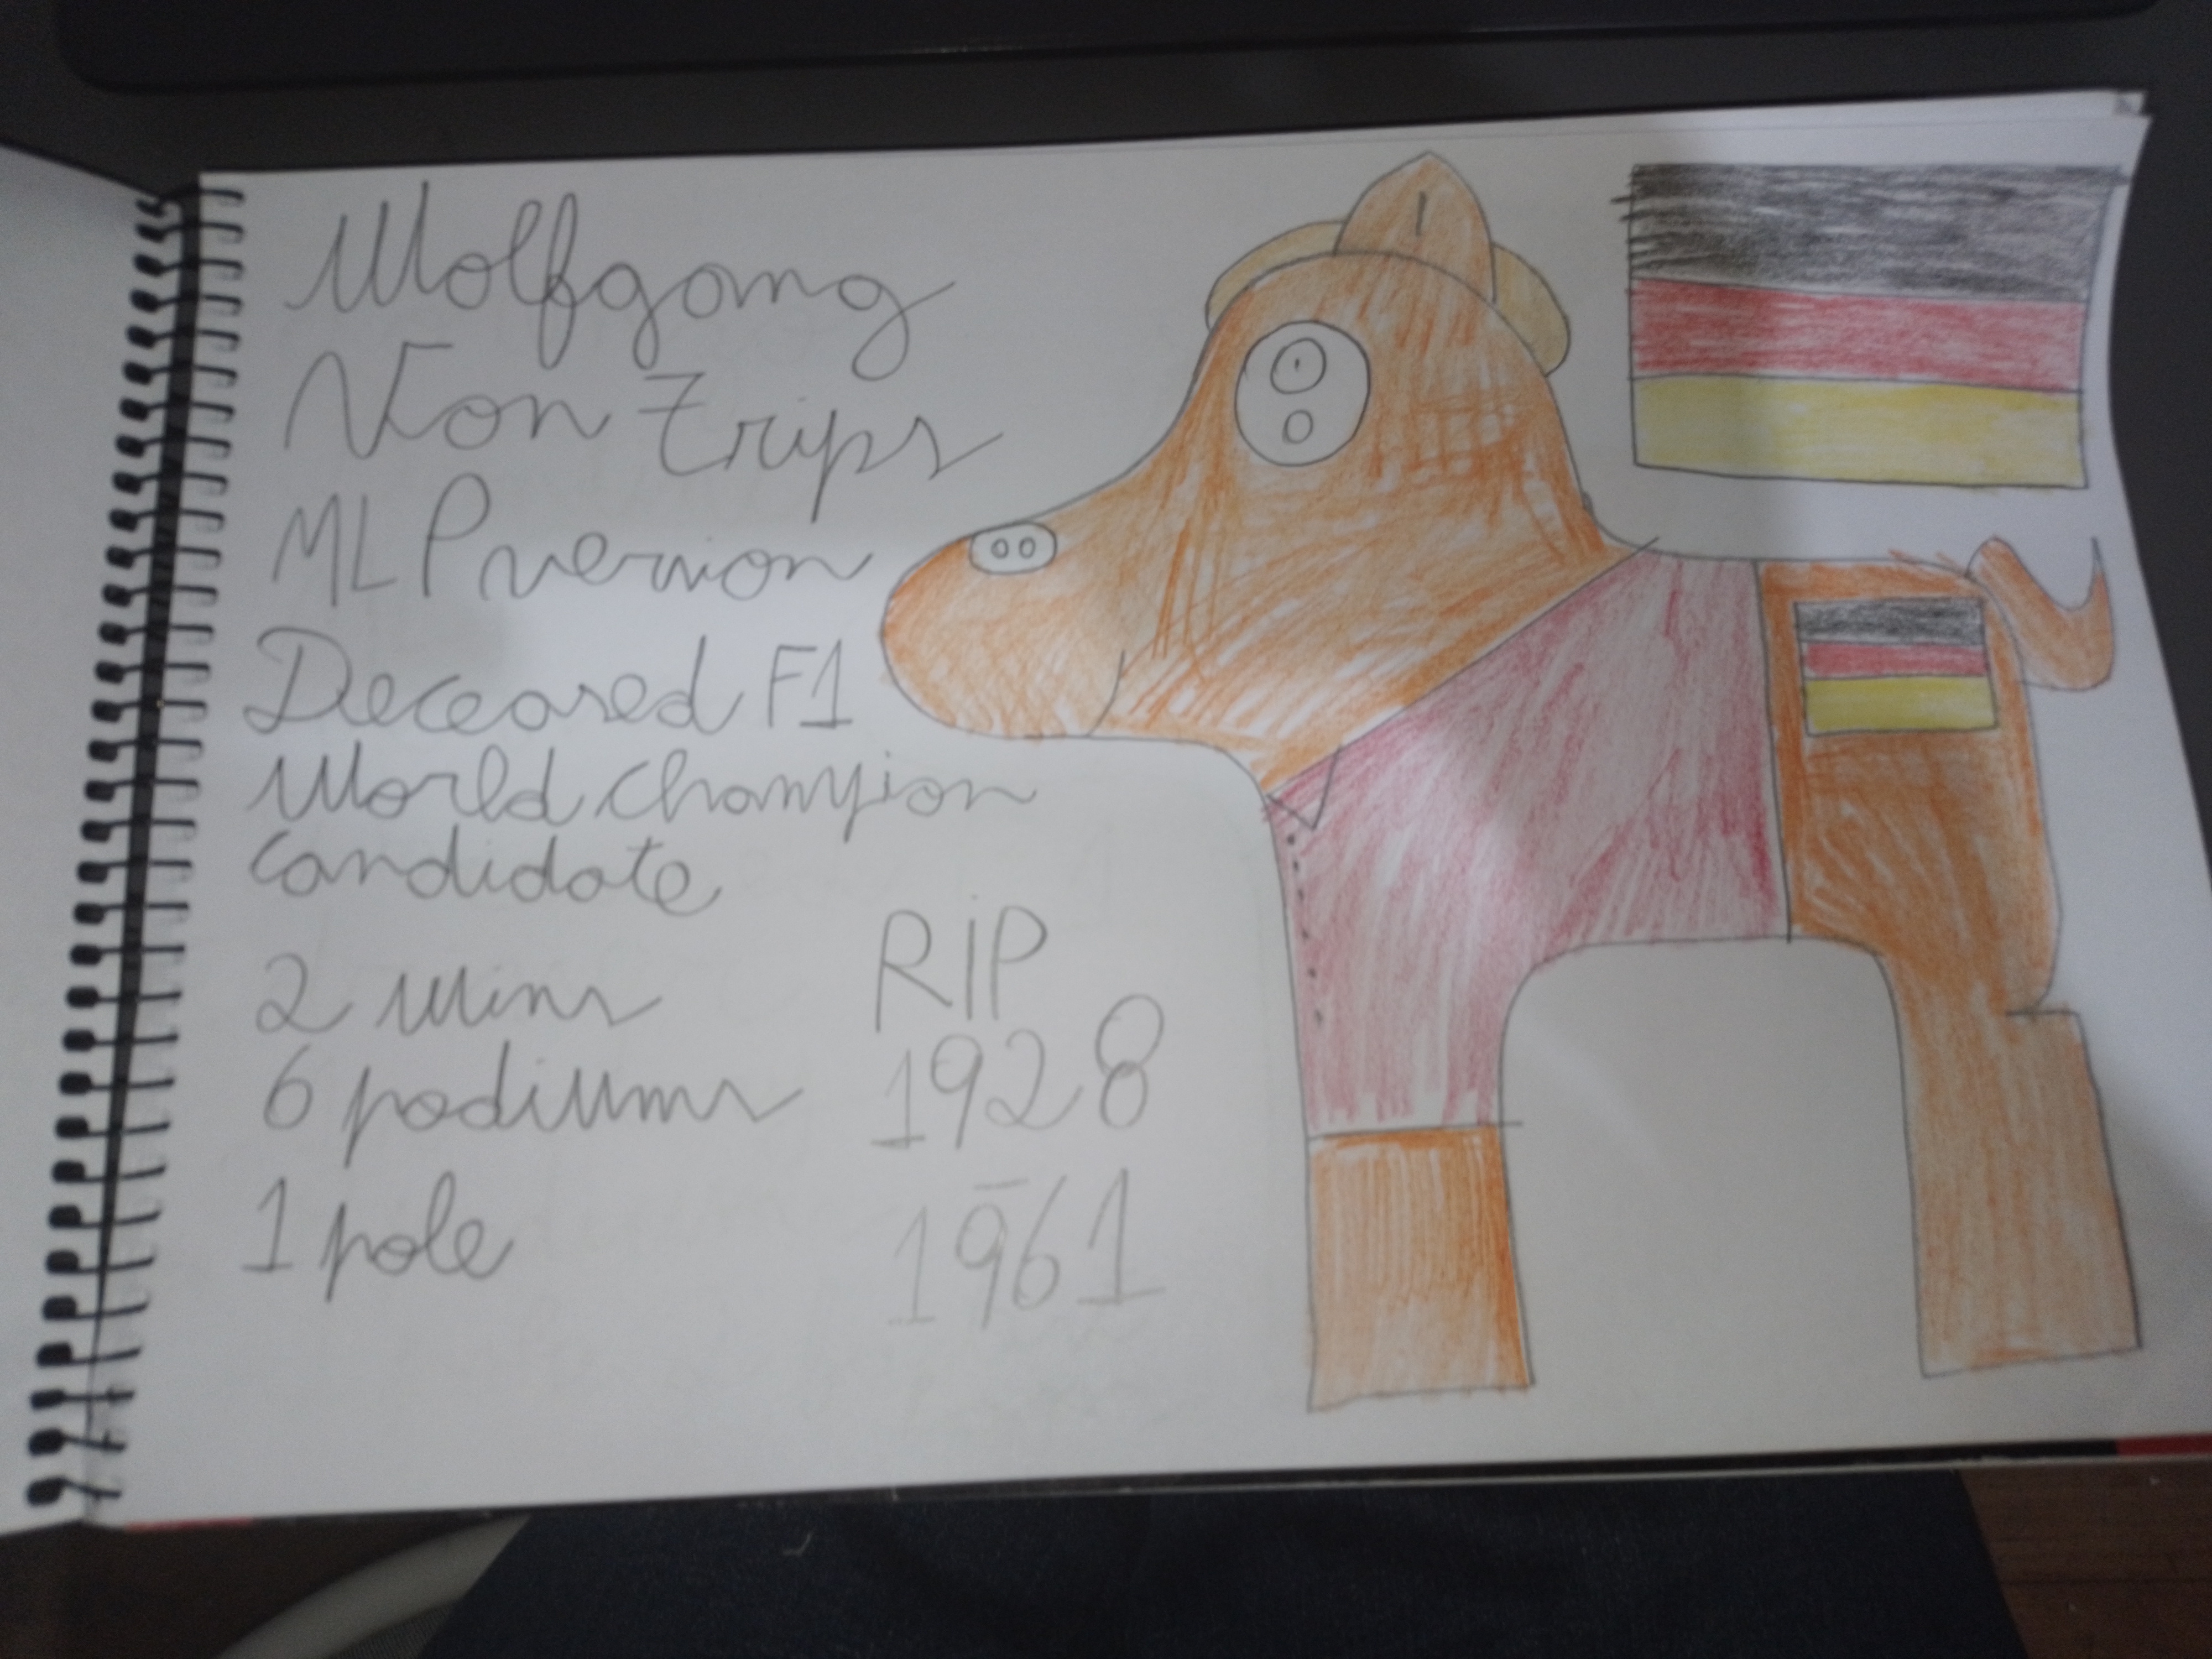 Wolfgang
Von Trips
MLP version
Deceased F1
World Champion
candidate
2 wins
6 podiums
1 pole
RIP
1928
-
1961